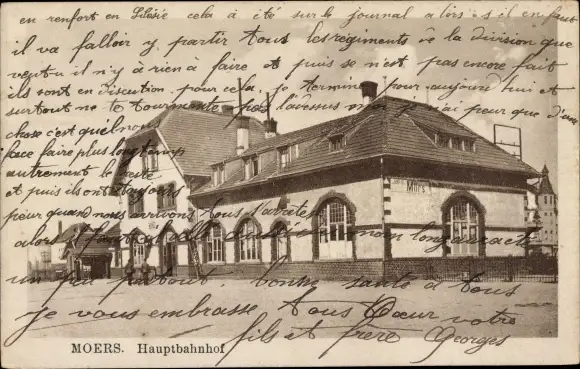 en renfort en Silésie cela à été sur le journal alors s'il en faut
il va falloir y partir tous les régiments de la division que
veut-tu il n'y à rien à faire et puis se n'est pas encore fait
ils sont en discution pour cela, je termine pour aujourd'hui et
surtout ne te tourmente pas là dessus mais j'ai peur que d'une
chose c'est qu'il nous
face faire plus longtemps
autrement le reste
et puis ils ont toujours
peur quand nous arrivons
alors
un peu partout. bonne santé à tous
je vous embrasse tous de Cœur votre
fils et frère Georges
Mörs
MOERS. Hauptbahnhof